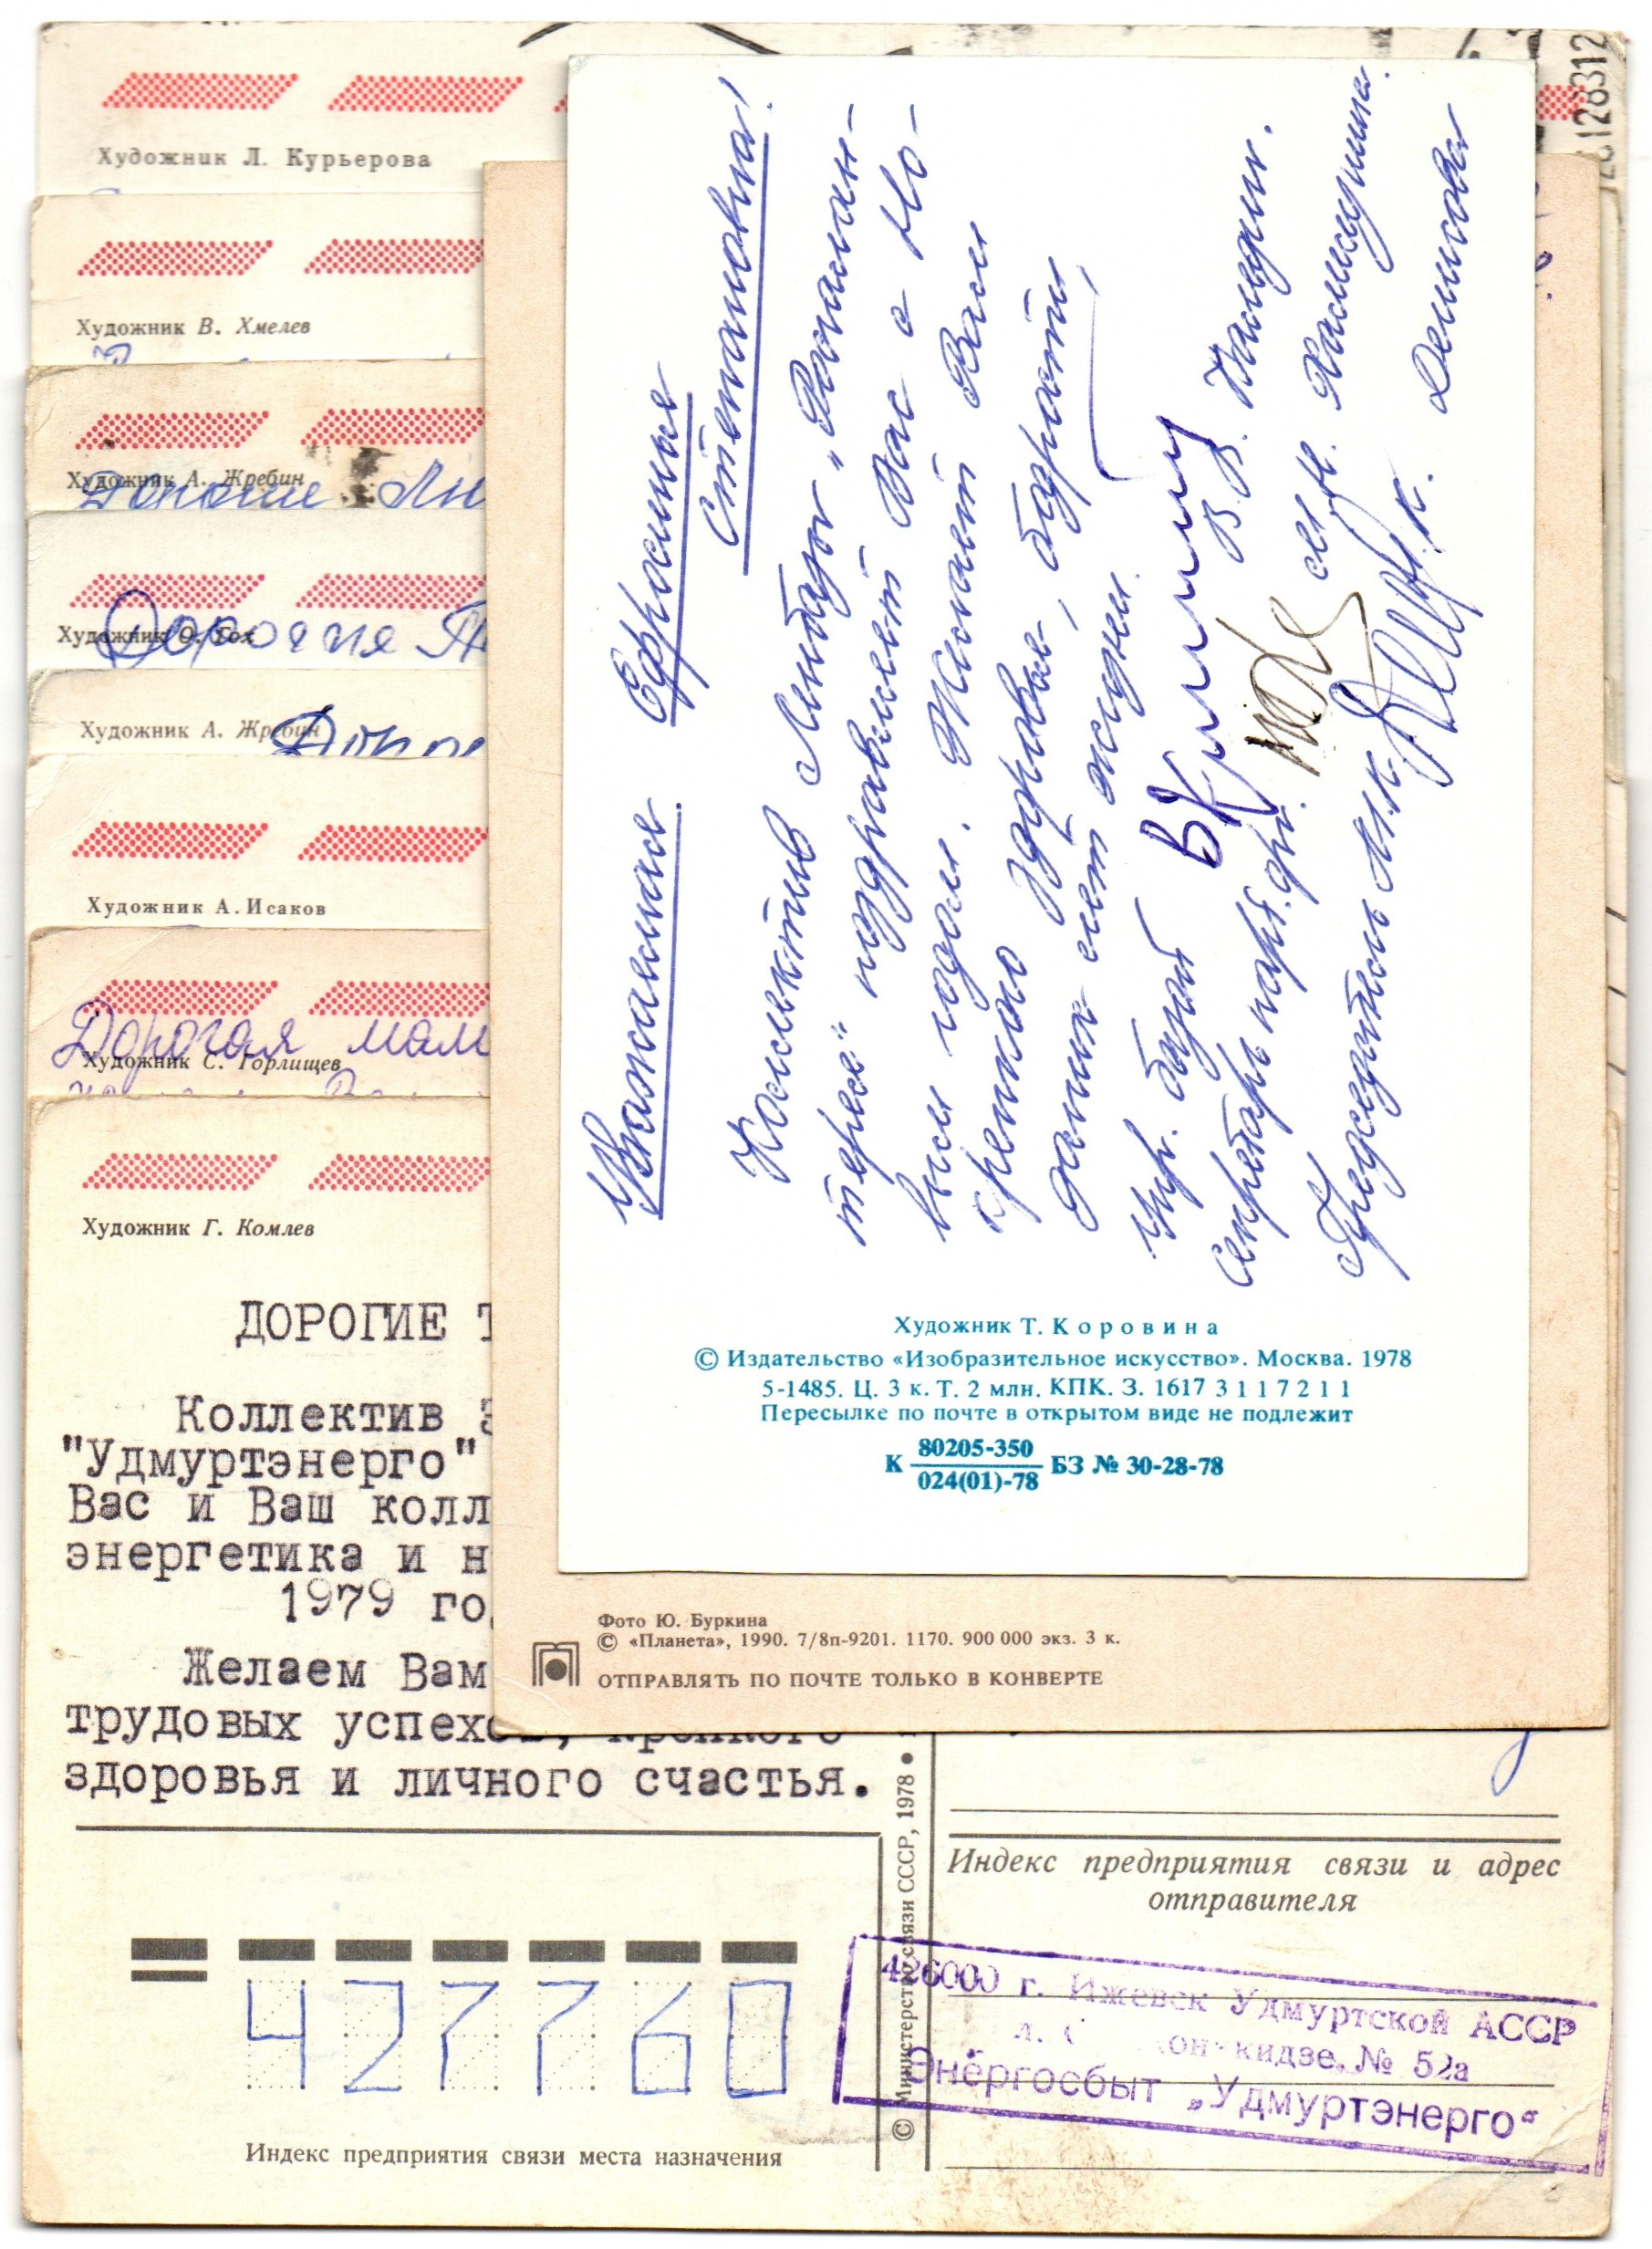 Художник Л. Курьерова
Художник В. Хмелев
Художник А. Жребин
Дорогие
Художник
Дорогие
Художник А. Жребин
Художник А. Исаков
Дорогая мам
Художник С. Горлищев
Художник Г. Комлев
ДОРОГИЕ Т
Коллектив Э
"Удмуртэнерго"
Вас и Ваш колл
энергетика и н
1979 го
Желаем Вам
трудовых успехов, крепкого
здоровья и личного счастья.
427760
Индекс предприятия связи места назначения
© Министерство связи СССР, 1978 •
Индекс предприятия связи и адрес
отправителя
426000 г. Ижевск Удмуртской АССР
кидзе, № 52а
Энергосбыт „Удмуртэнерго“
Уважаемая Ефросинья
Степановна!
Коллектив
поздравляет Вас с Но-
вым годом. Желает Вам
крепкого здоровья, бодрости,
долгих лет жизни.
В.В.
Секретарь парт.
Председатель М.К. Н.К. Денисова
Художник Т. Коровина
© Издательство «Изобразительное искусство». Москва. 1978
5-1485. Ц. 3 к. Т. 2 млн. КПК. З. 1617 3 1 1 7 2 1 1
Пересылке по почте в открытом виде не подлежит
К 80205-350
024(01)-78 БЗ № 30-28-78
Фото Ю. Буркина
© «Планета», 1990. 7/8п-9201. 1170. 900 000 экз. 3 к.
ОТПРАВЛЯТЬ ПО ПОЧТЕ ТОЛЬКО В КОНВЕРТЕ